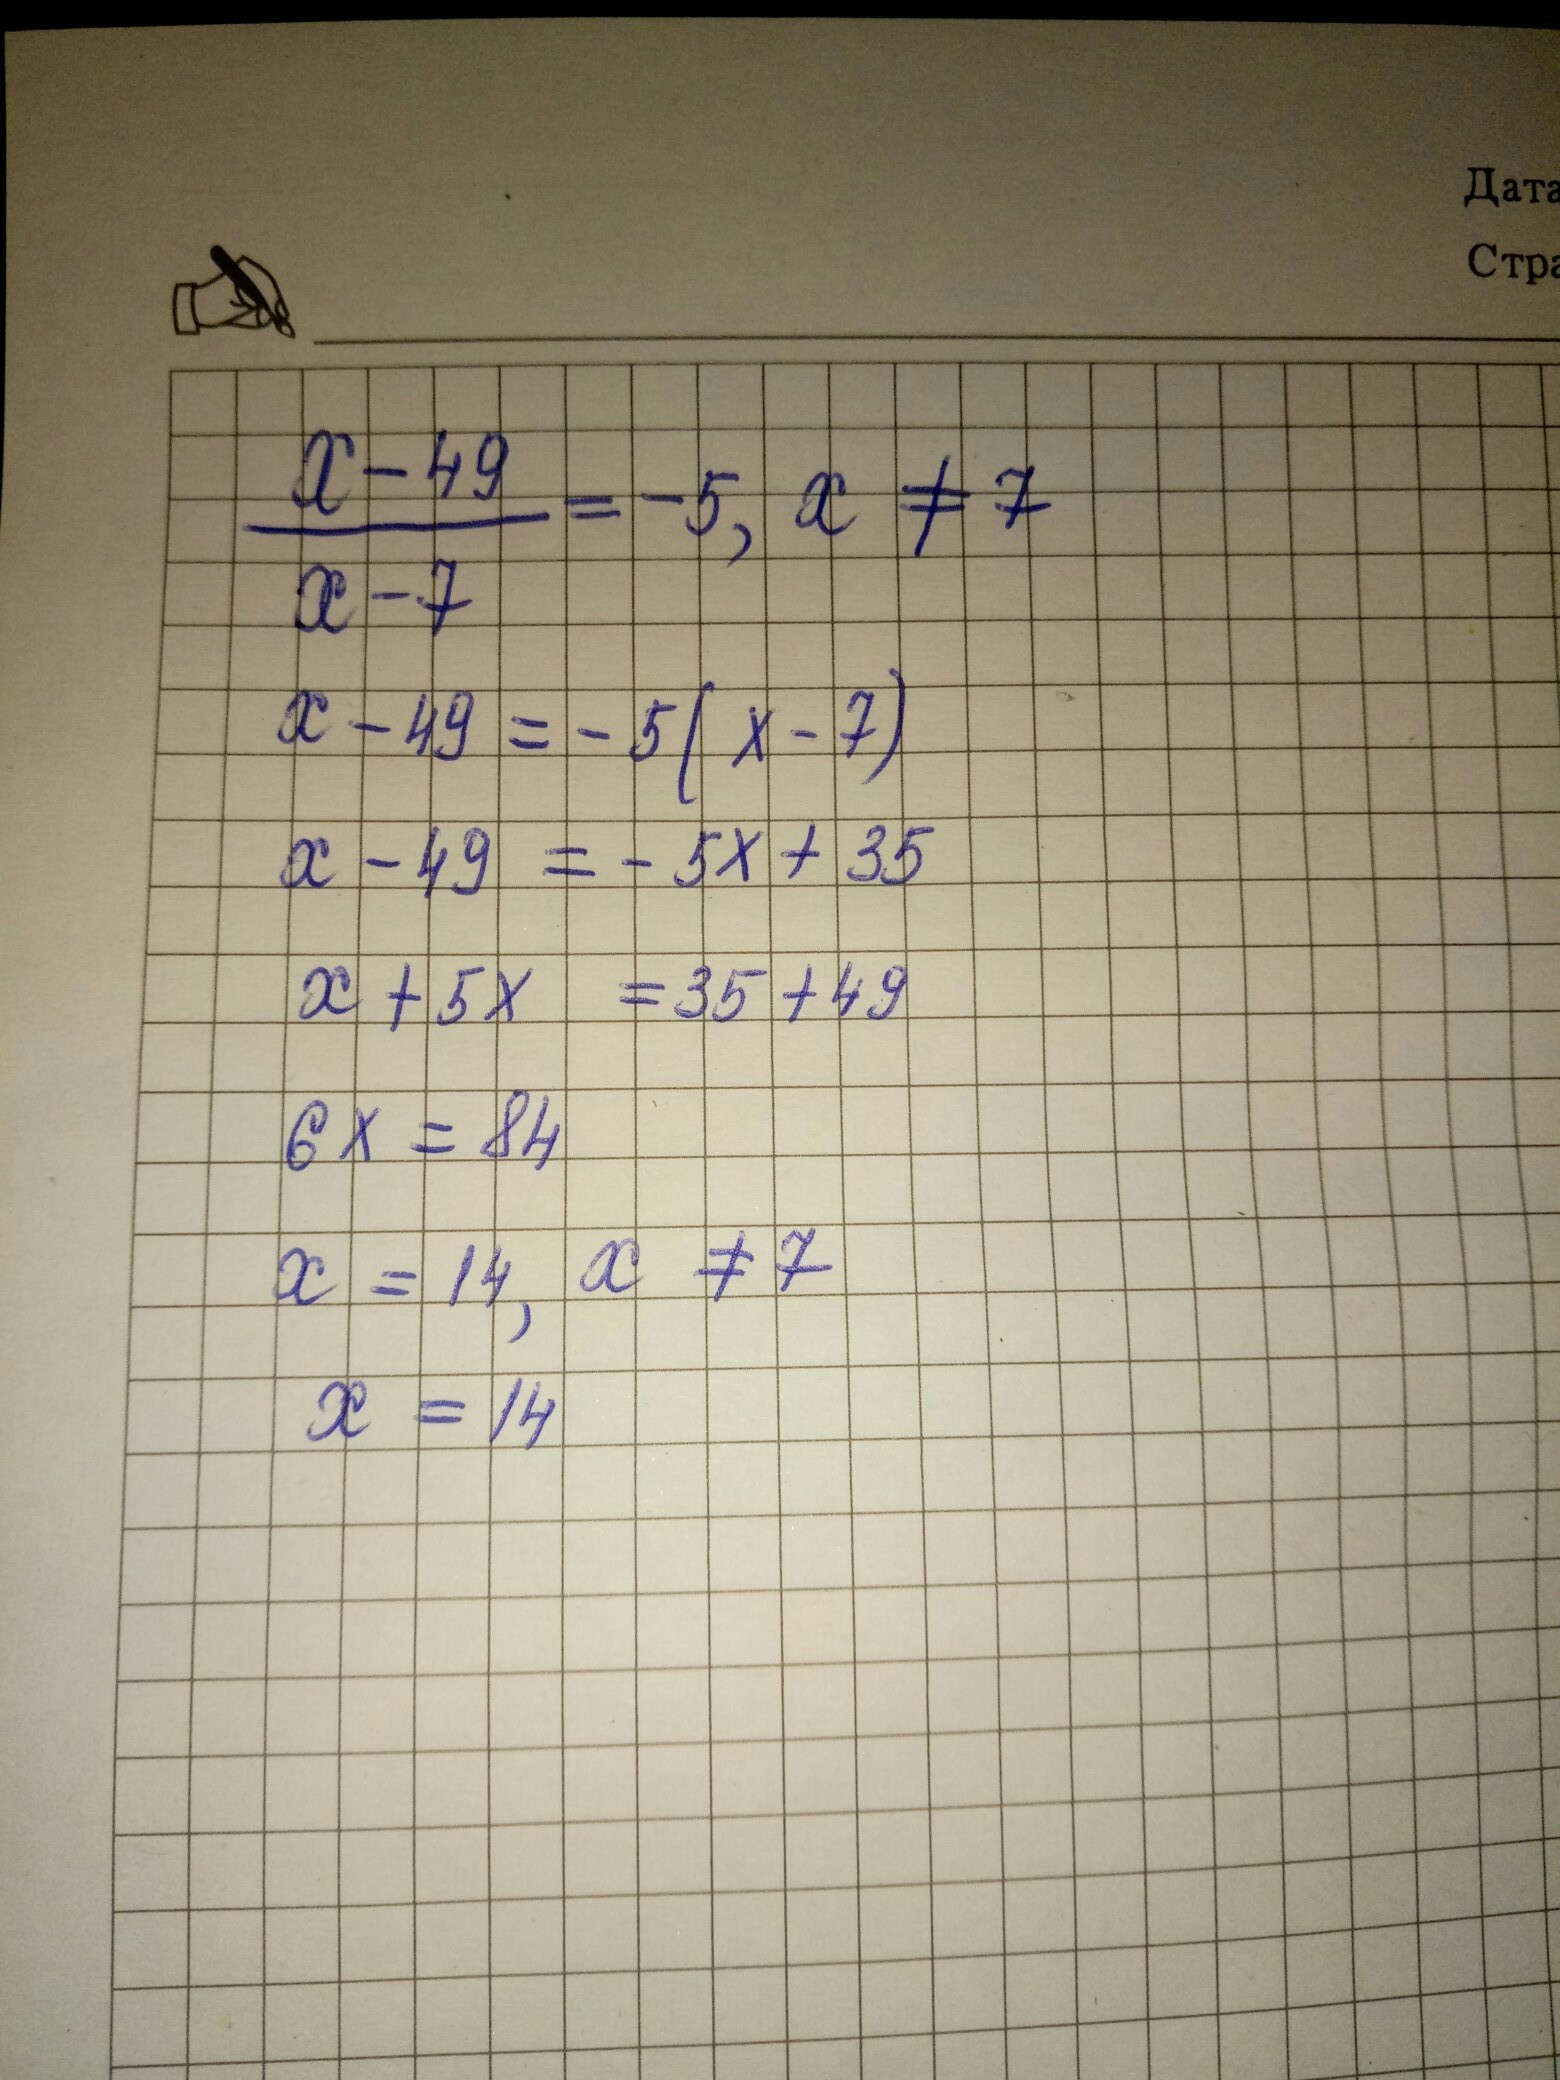 Дата
Стра
x - 49
x - 7
= -5, x ≠ 7
x - 49 = -5(x - 7)
x - 49 = -5x + 35
x + 5x = 35 + 49
6x = 84
x = 14, x ≠ 7
x = 14